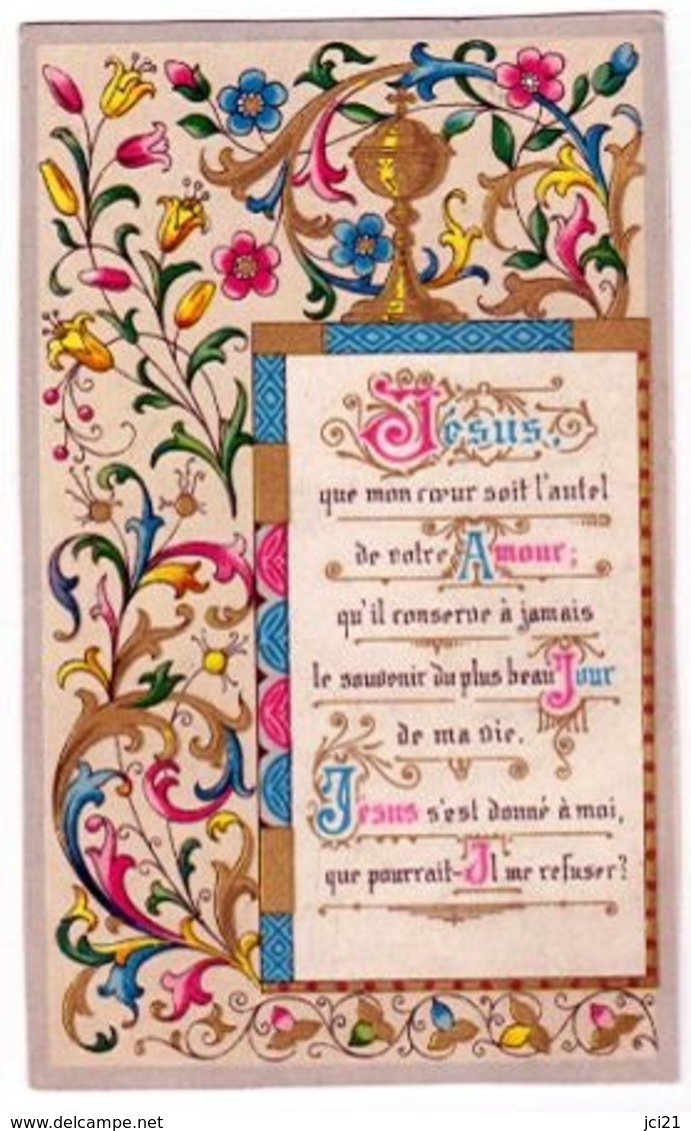 Jésus,
que mon cœur soit l'autel
de votre Amour;
qu'il conserve à jamais
le souvenir du plus beau Jour
de ma vie.
Jésus s'est donné à moi,
que pourrait-Il me refuser?
www.delcampe.net
jci21